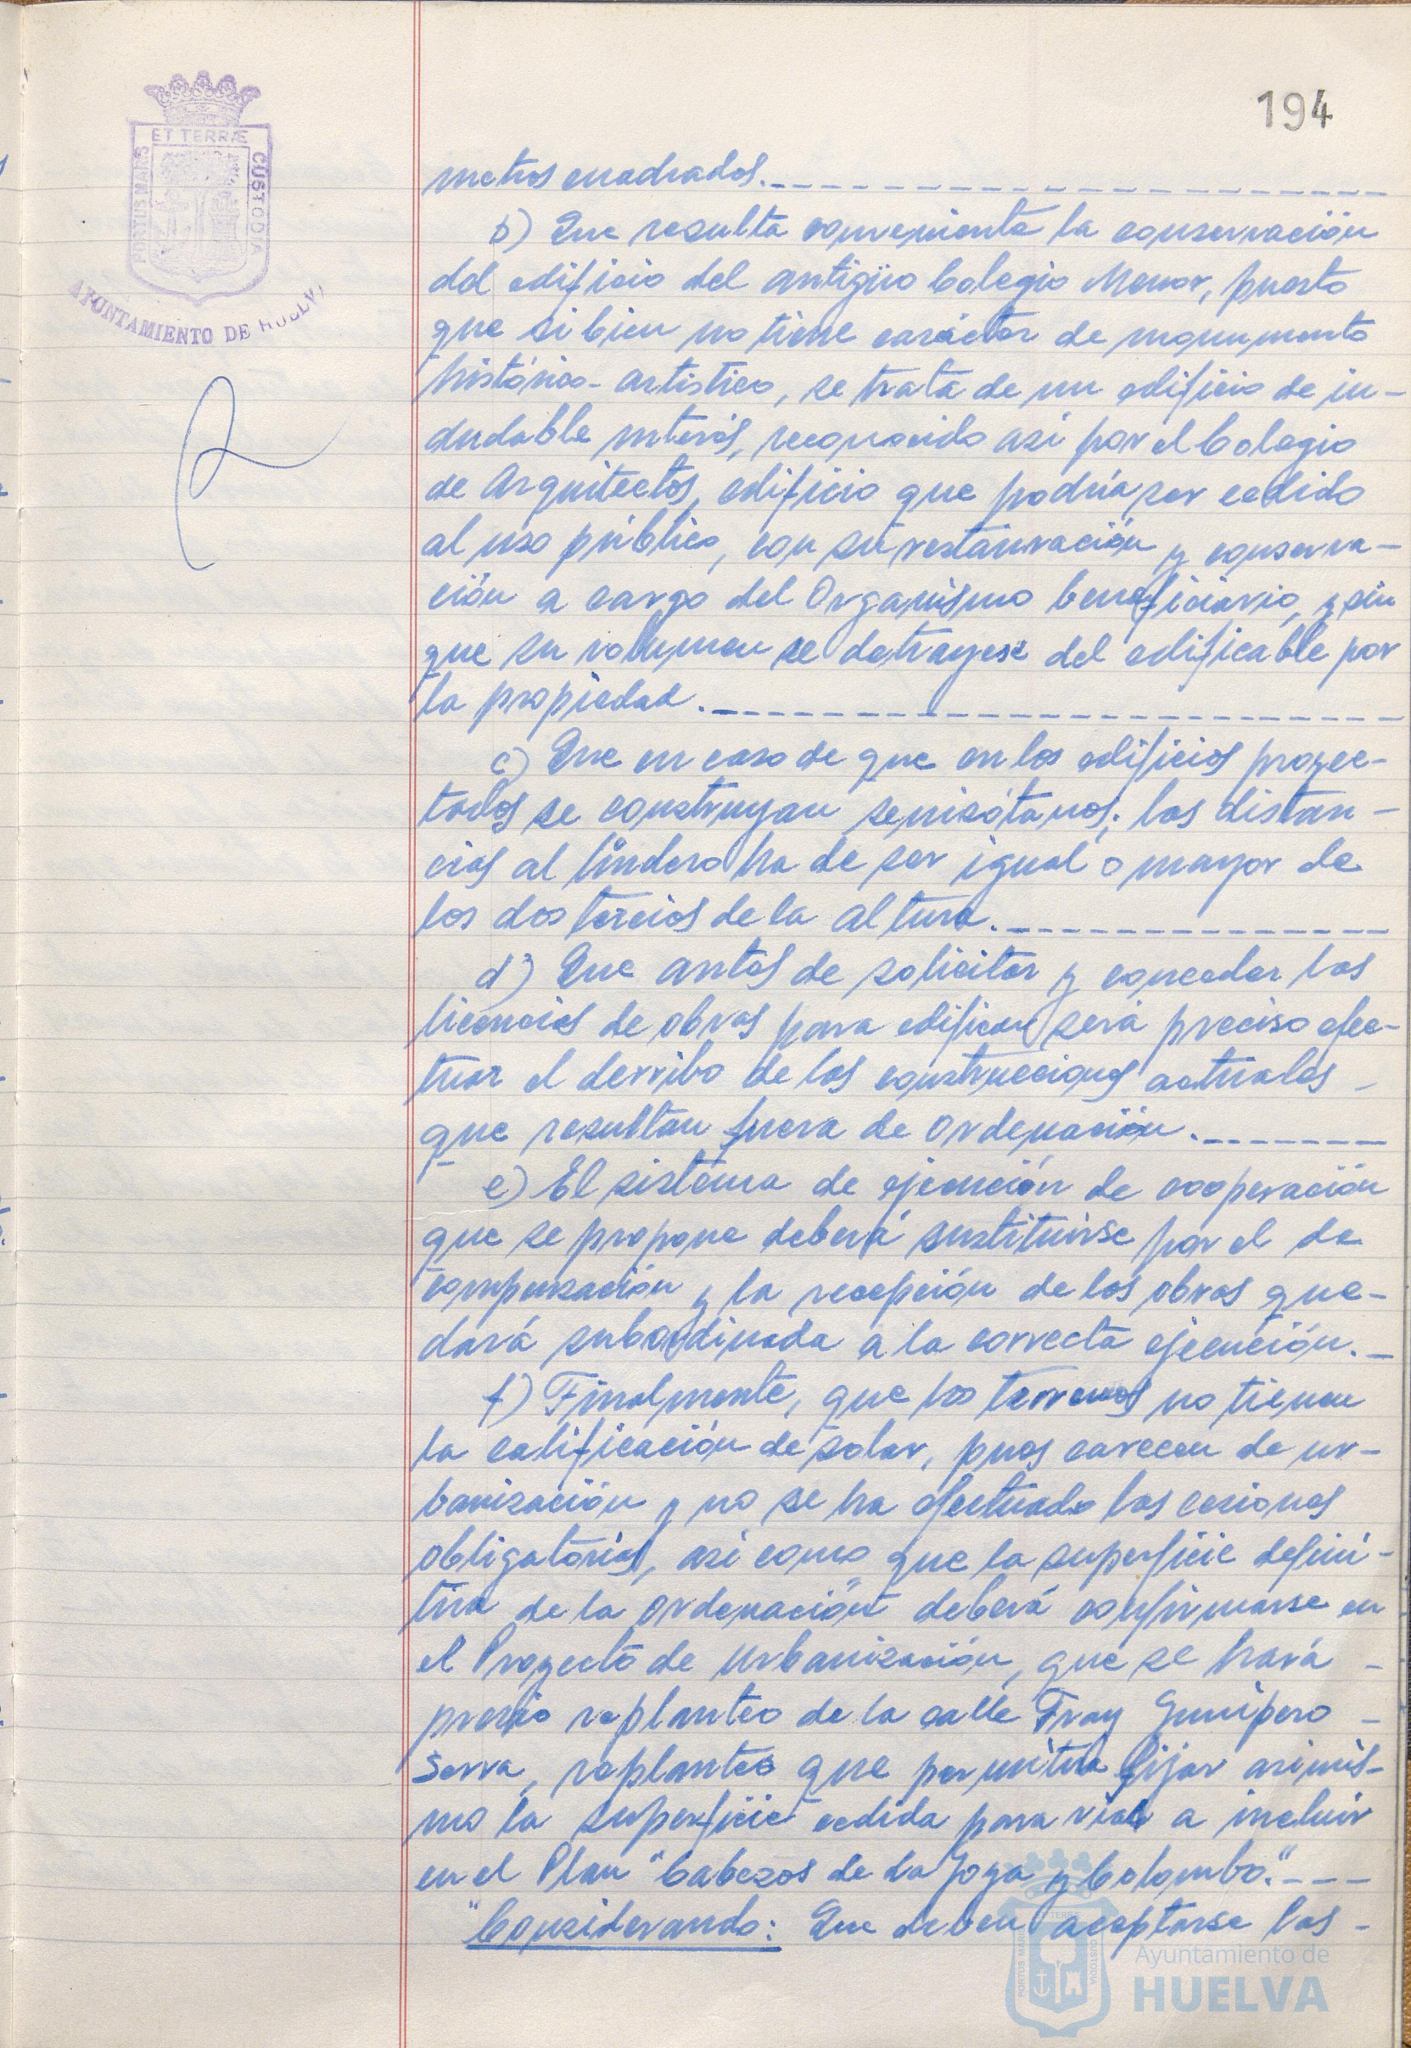 194
ET TERRÆ
PORTUS MARIS
CUSTODIA
AYUNTAMIENTO DE HUELVA
metros cuadrados.
b) Que resulta conveniente la conservación
del edificio del antigüo Colegio Menor, puesto
que si bien no tiene carácter de monumento
histórico-artistico, se trata de un edificio de in-
dudable interés, reconocido asi por el Colegio
de Arquitectos, edificio que podría ser cedido
al uso público, con su restauración y conserva-
ción a cargo del Organismo beneficiario, y sin
que su volumen se detrayese del edificable por
la propiedad.
c) Que en caso de que en los edificios proyec-
tados se construyan semisótanos, las distan-
cias al lindero ha de ser igual o mayor de
los dos tercios de la altura.
d) Que antes de solicitar y conceder las
licencias de obras para edificar será preciso efec-
tuar el derribo de las construcciones actuales
que resultan fuera de Ordenación.
e) El sistema de ejecución de cooperación
que se propone deberá sustituirse por el de
compensación y la recepción de las obras que-
dará subordinada a la correcta ejecución.
f) Finalmente, que los terrenos no tienen
la calificación de solar, pues carecen de ur-
banización y no se ha efectuado las cesiones
obligatorias, asi como que la superficie defini-
tiva de la ordenación deberá confirmarse en
el Proyecto de Urbanización, que se hará
previo replanteo de la calle Fray Junípero
Serra, replanteo que permitirá fijar asimis-
mo la superficie cedida para vial a incluir
en el Plan "Cabezos de La Joya y Colombo".
"Considerando: Que deben aceptarse las
Ayuntamiento de
HUELVA